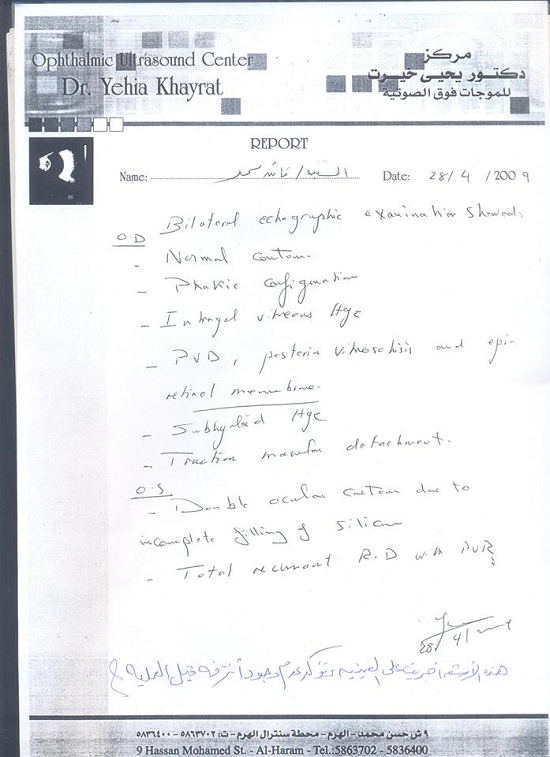 Ophthalmic Ultrasound Center
Dr. Yehia Khayrat
مركز
دكتور يحيى خيرت
للموجات فوق الصوتية
REPORT
Name: السيدة / محمد Date: 28/4/2009
Bilateral echographic examination showed:
O.D
- Normal contour.
- Phakic configuration
- Intragel vitreous Hge
- PVD, posterior vitreoschisis and epi-
retinal membrane.
- Subhyaloid Hge
- Traction macular detachment.
O.S
- Double ocular contour due to
incomplete filling of silicon
- Total recurrent R.D with PVR
28/4/
هذه الأشعة أجريت على العينين وتؤكد عدم وجود نزف قبل العملية
٩ ش حسن محمد - الهرم - محطة سنترال الهرم - ت: ٥٨٦٣٧٠٢ - ٥٨٣٦٤٠٠
9 Hassan Mohamed St. - Al-Haram - Tel.:5863702 - 5836400